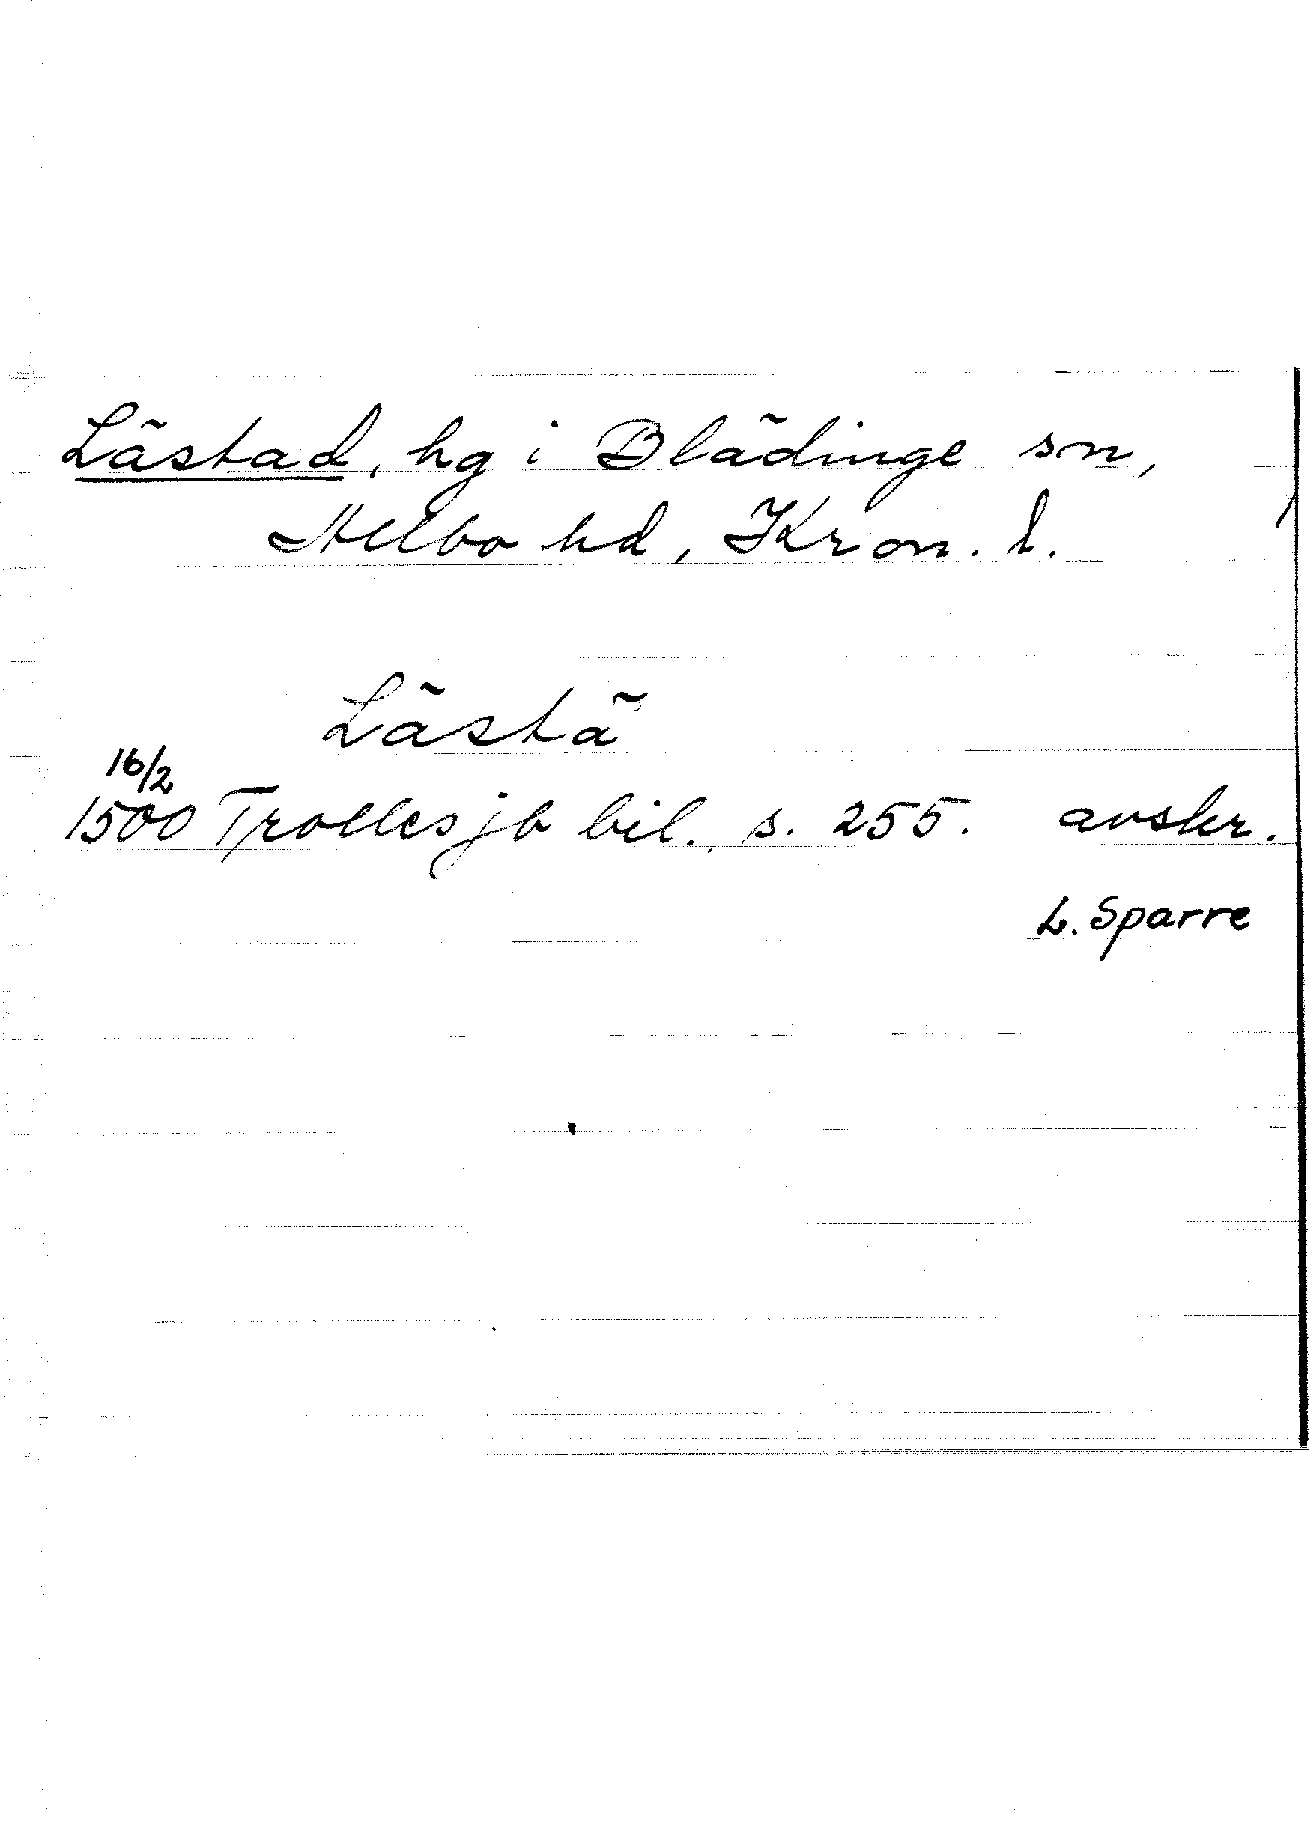 Lästad, hg i Blädinge sn,
Allbo hd, Kron. l.
Lästä
16/2
1500 Trolles jb bil., s. 255. avskr.
L. Sparre